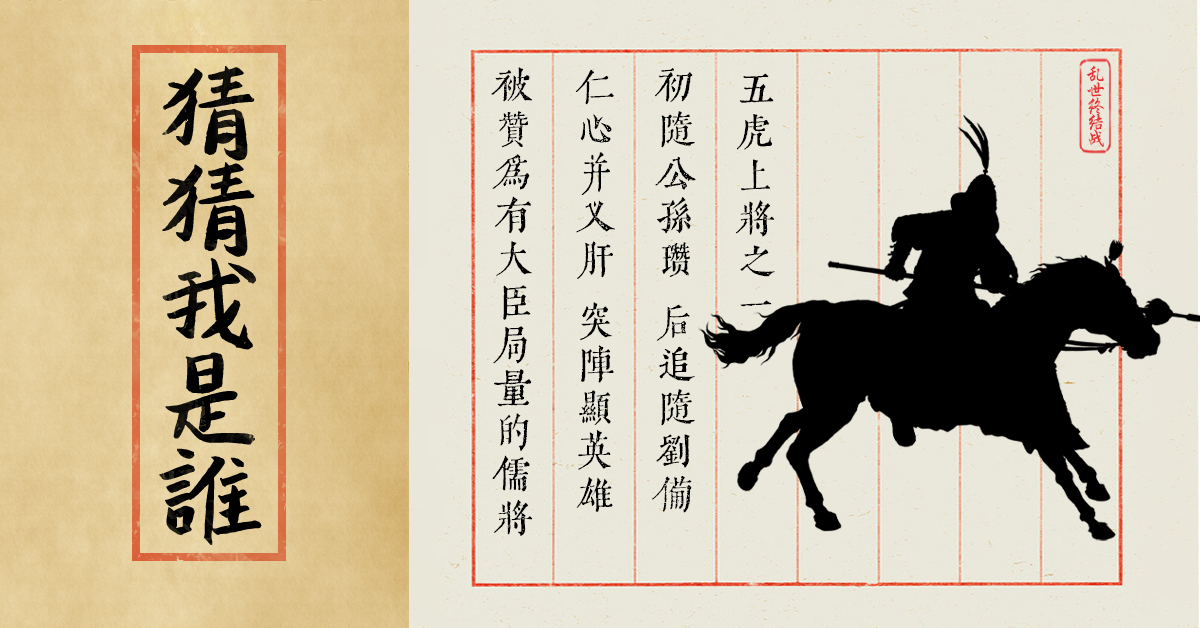 猜猜我是誰
乱世终结战
五虎上將之一
初隨公孫瓚 后追隨劉備
仁心并义肝 突陣顯英雄
被贊爲有大臣局量的儒將